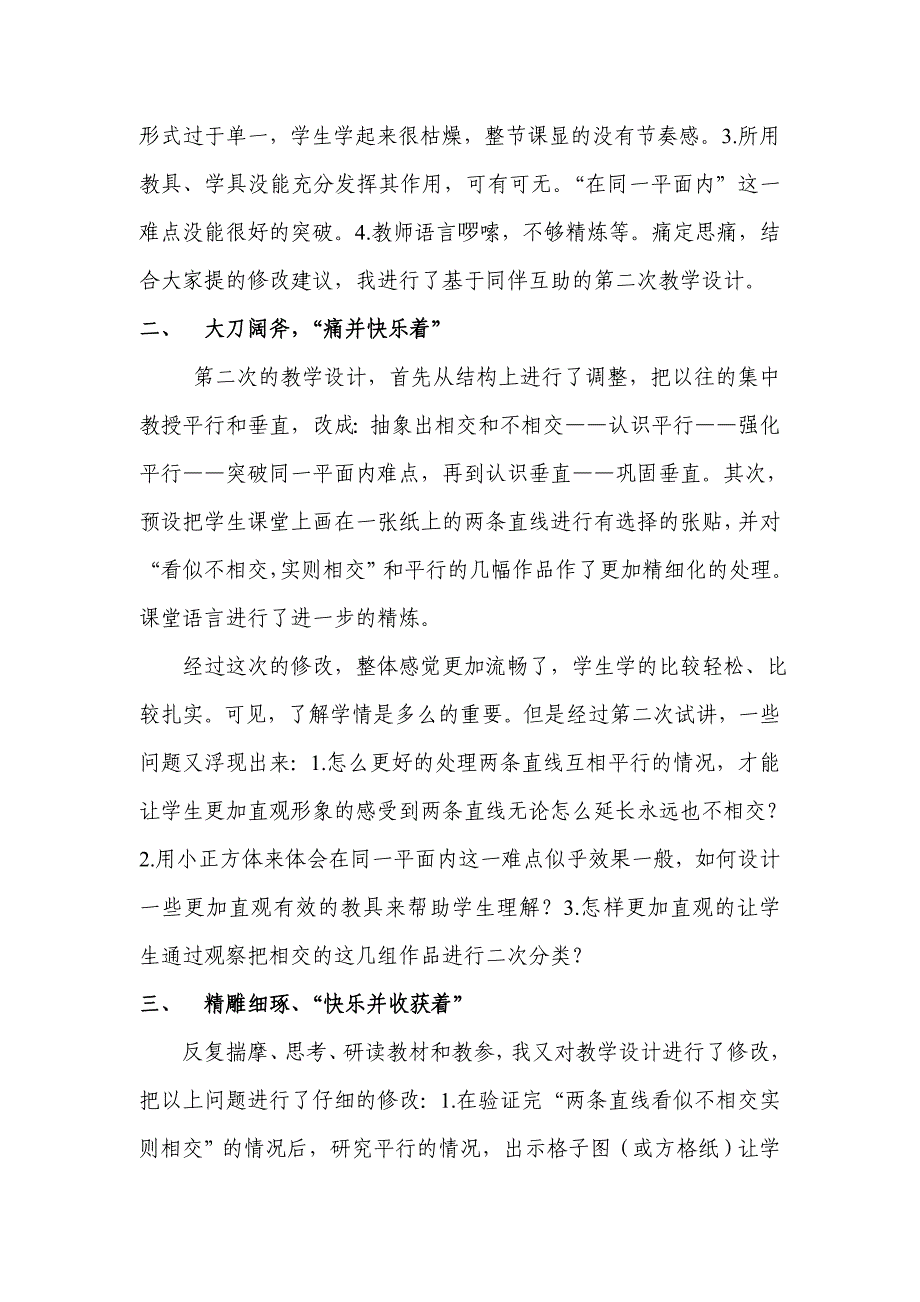 形式过于单一，学生学起来很枯燥，整节课显的没有节奏感。3.所用
教具、学具没能充分发挥其作用，可有可无。“在同一平面内”这一
难点没能很好的突破。4.教师语言啰嗦，不够精炼等。痛定思痛，结
合大家提的修改建议，我进行了基于同伴互助的第二次教学设计。
二、 大刀阔斧，“痛并快乐着”
第二次的教学设计，首先从结构上进行了调整，把以往的集中
教授平行和垂直，改成：抽象出相交和不相交——认识平行——强化
平行——突破同一平面内难点，再到认识垂直——巩固垂直。其次，
预设把学生课堂上画在一张纸上的两条直线进行有选择的张贴，并对
“看似不相交，实则相交”和平行的几幅作品作了更加精细化的处理。
课堂语言进行了进一步的精炼。
经过这次的修改，整体感觉更加流畅了，学生学的比较轻松、比
较扎实。可见，了解学情是多么的重要。但是经过第二次试讲，一些
问题又浮现出来：1.怎么更好的处理两条直线互相平行的情况，才能
让学生更加直观形象的感受到两条直线无论怎么延长永远也不相交？
2.用小正方体来体会在同一平面内这一难点似乎效果一般，如何设计
一些更加直观有效的教具来帮助学生理解？3.怎样更加直观的让学
生通过观察把相交的这几组作品进行二次分类？
三、 精雕细琢、“快乐并收获着”
反复揣摩、思考、研读教材和教参，我又对教学设计进行了修改，
把以上问题进行了仔细的修改：1.在验证完“两条直线看似不相交实
则相交”的情况后，研究平行的情况，出示格子图（或方格纸）让学